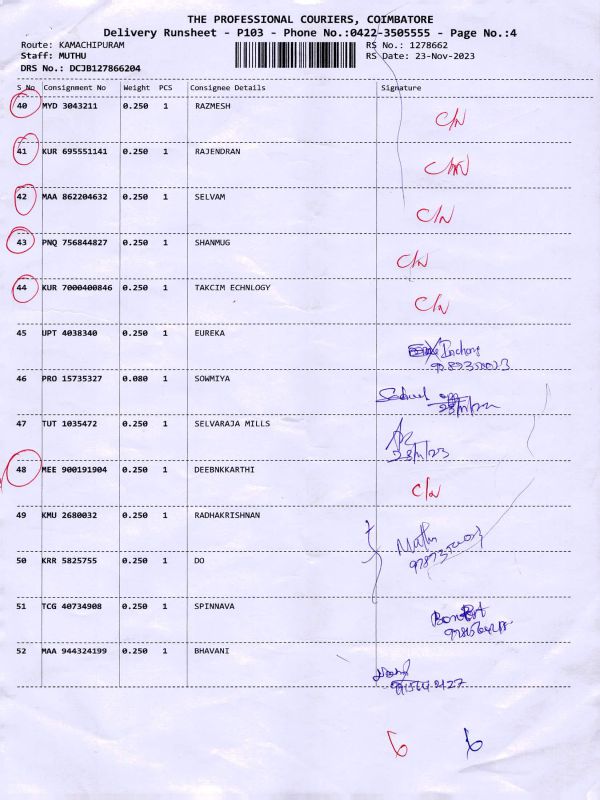 THE PROFESSIONAL COURIERS, COIMBATORE
Delivery Runsheet - P103 - Phone No.:0422-3505555 - Page No.:4
Route: KAMACHIPURAM RS No.: 1278662
Staff: MUTHU RS Date: 23-Nov-2023
DRS No.: DCJB127866204
S No Consignment No Weight PCS Consignee Details Signature
40 MYD 3043211 0.250 1 RAZMESH C/N
41 KUR 695551141 0.250 1 RAJENDRAN
42 MAA 862204632 0.250 1 SELVAM C/N
43 PNQ 756844827 0.250 1 SHANMUG C/N
44 KUR 7000400846 0.250 1 TAKCIM ECHNLOGY C/N
45 UPT 4038340 0.250 1 EUREKA
46 PRO 15735327 0.080 1 SOWMIYA
47 TUT 1035472 0.250 1 SELVARAJA MILLS
23/11/23
48 MEE 900191904 0.250 1 DEEBNKKARTHI C/N
49 KMU 2680032 0.250 1 RADHAKRISHNAN
50 KRR 5825755 0.250 1 DO
51 TCG 40734908 0.250 1 SPINNAVA
52 MAA 944324199 0.250 1 BHAVANI
6 6